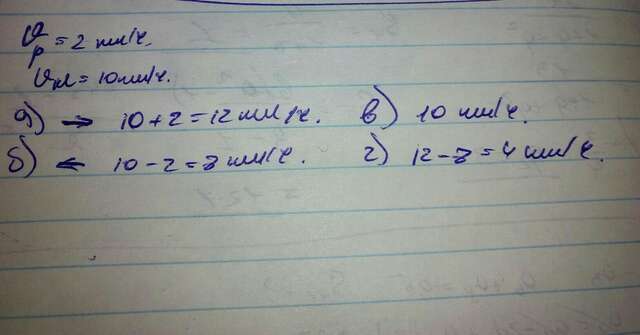 υр = 2 км/ч.
υл = 10 км/ч.
а) → 10 + 2 = 12 км/ч. в) 10 км/ч.
б) ← 10 - 2 = 8 км/ч. г) 12 - 8 = 4 км/ч.